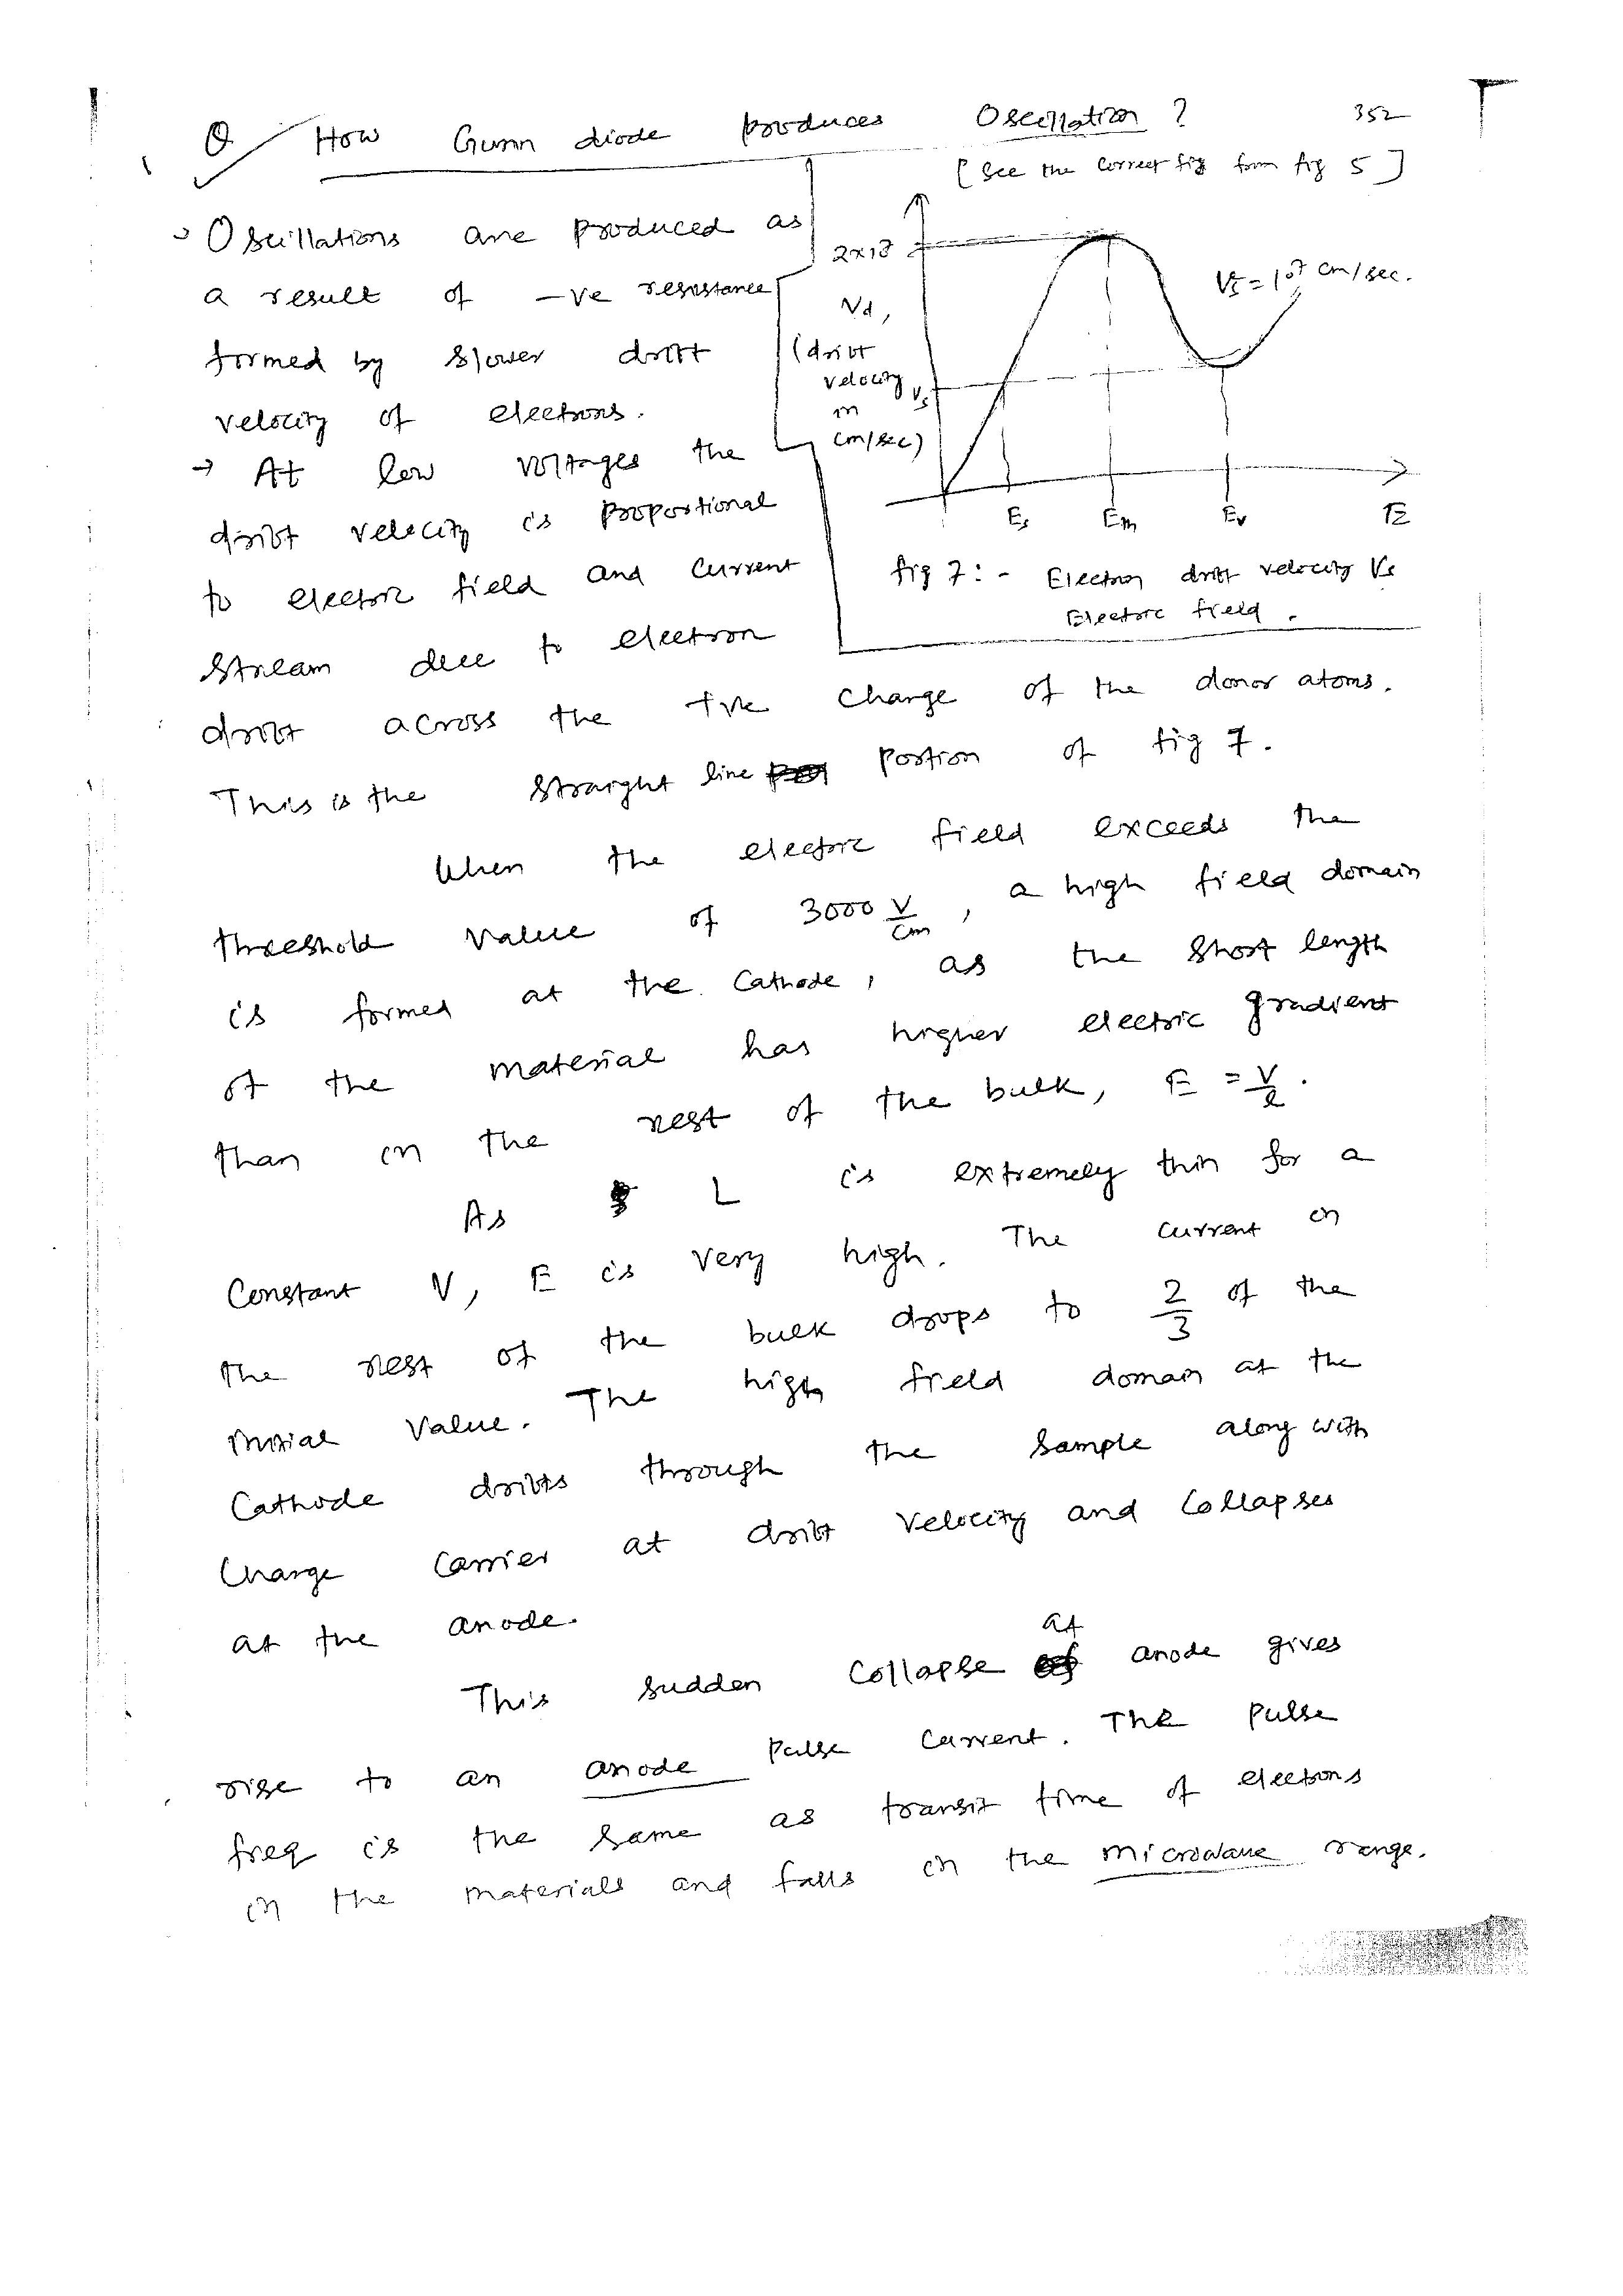 Q How Gunn diode produces Oscillation ?
352
[ See the Correct fig from fig 5 ]
Oscillations are produced as
a result of -ve resistance
formed by slower drift
velocity of electrons.
→ At low voltages the
drift velocity is proportional
to electric field and current
stream due to electron
drift across the +ve charge of the donor atoms.
This is the straight line portion of fig 7.
2x10⁷
Vd,
(drift
velocity
in
cm/sec)
Vs
Vs = 10⁷ cm/sec.
Es Em Ev E
fig 7: - Electron drift velocity Vs
Electric field.
When the electric field exceeds the
threshold value of 3000 V/cm, a high field domain
is formed at the cathode, as the short length
of the material has higher electric gradient
than in the rest of the bulk, E = V/l.
As L is extremely thin for a
constant V, E is very high. The current in
the rest of the bulk drops to 2/3 of the
initial value. The high field domain at the
Cathode drifts through the sample along with
Charge carrier at drift velocity and collapses
at the anode.
This sudden collapse at anode gives
rise to an anode pulse current. The pulse
freq is the same as transit time of electrons
in the materials and falls in the microwave range.